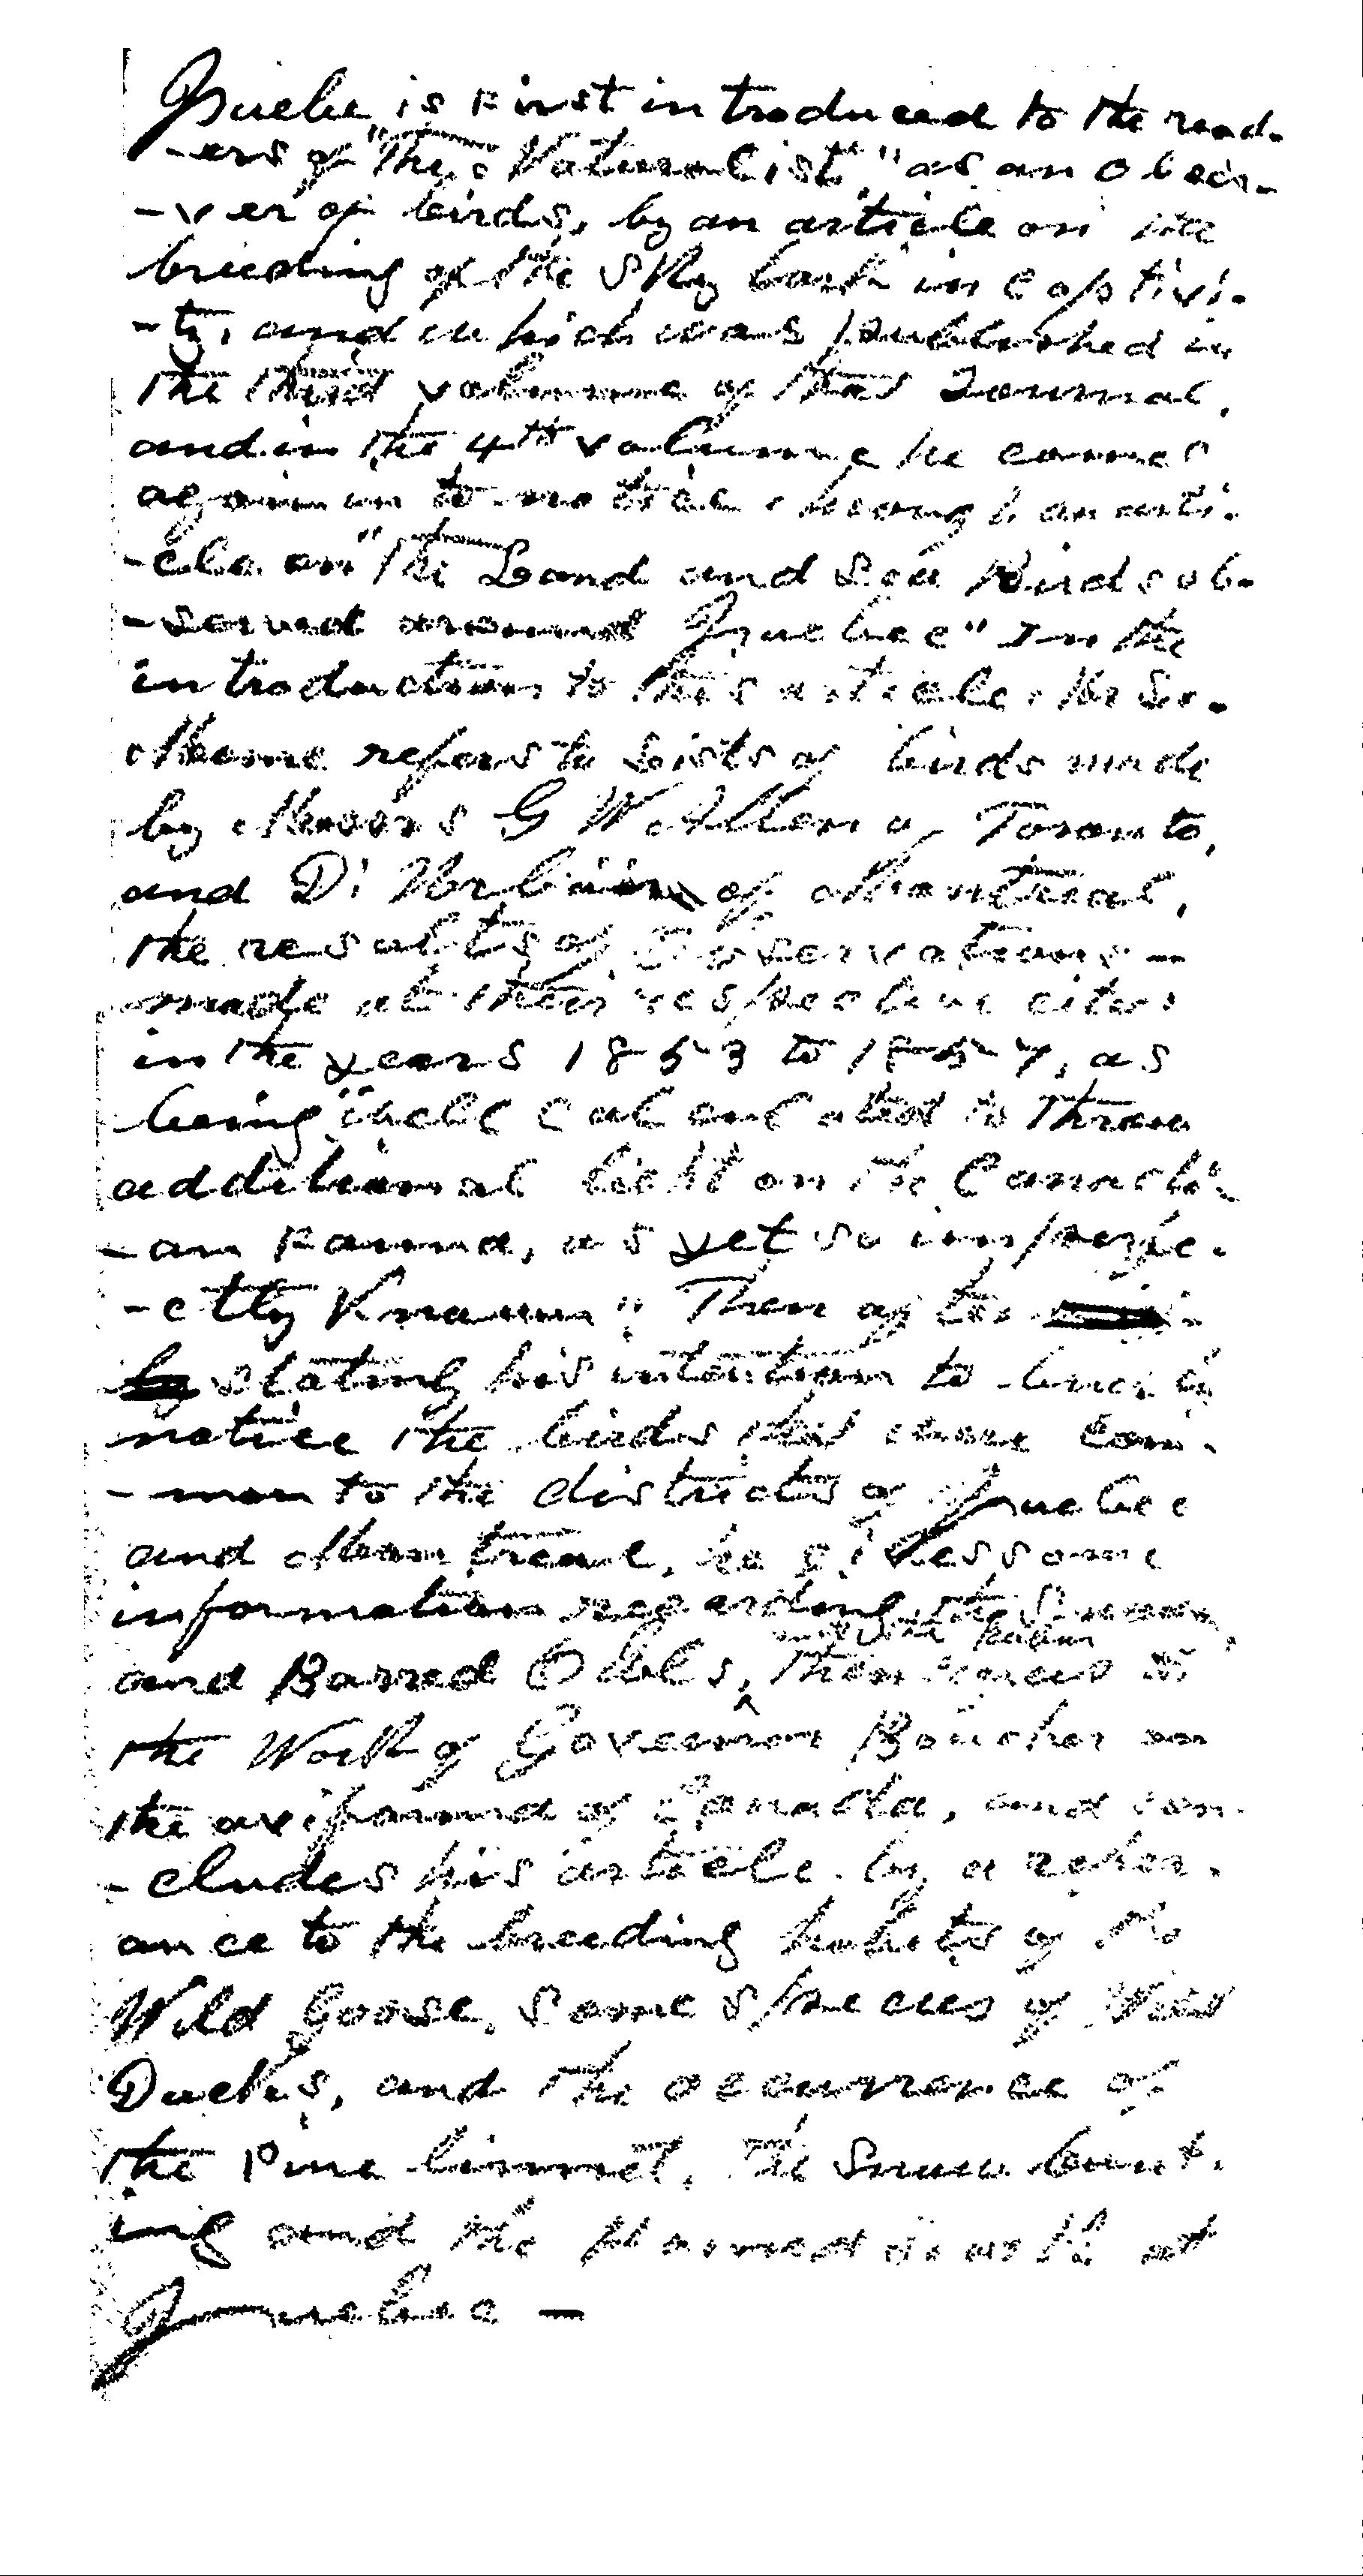 Quebec, is First introduced to the read-
-ers of "The Naturalist," as an obser-
-ver of birds, by an article on the
breeding of the Sky lark in captivi-
-ty, and which was published in
the third volumme of that Journal,
and in the 4th volumme he comes
again in to notice, having an arti-
-cle on "The Land and Sea Birds ob-
-served around Quebec" In the
introduction to this article, Mr Le-
Moine refers to Lists of birds made
by Messrs G W Allen of Toronto,
and D' Urbain of Montreal,
the results of observations -
made at their respective cities
in the years 1853 to 1857, as
being "well calculated to throw
additional light on the Canadi-
-an Fauna, as yet so imperfe-
-ctly Known". Then after
stating his intention to
notice the birds that were Com-
-mon to the districts of Quebec
and Montreal, he gives some
information regarding the Snowy
and Barred Owls, Then
the Work of Governor Boucher on
the avifauna of Canada, and con-
-cludes his article by a refer-
ance to the breeding habits of the
Wild Goose, Some species of Wild
Ducks, and the occurrence of
the Pine linnet, The Snow bunt-
ing and the at
Quebec -